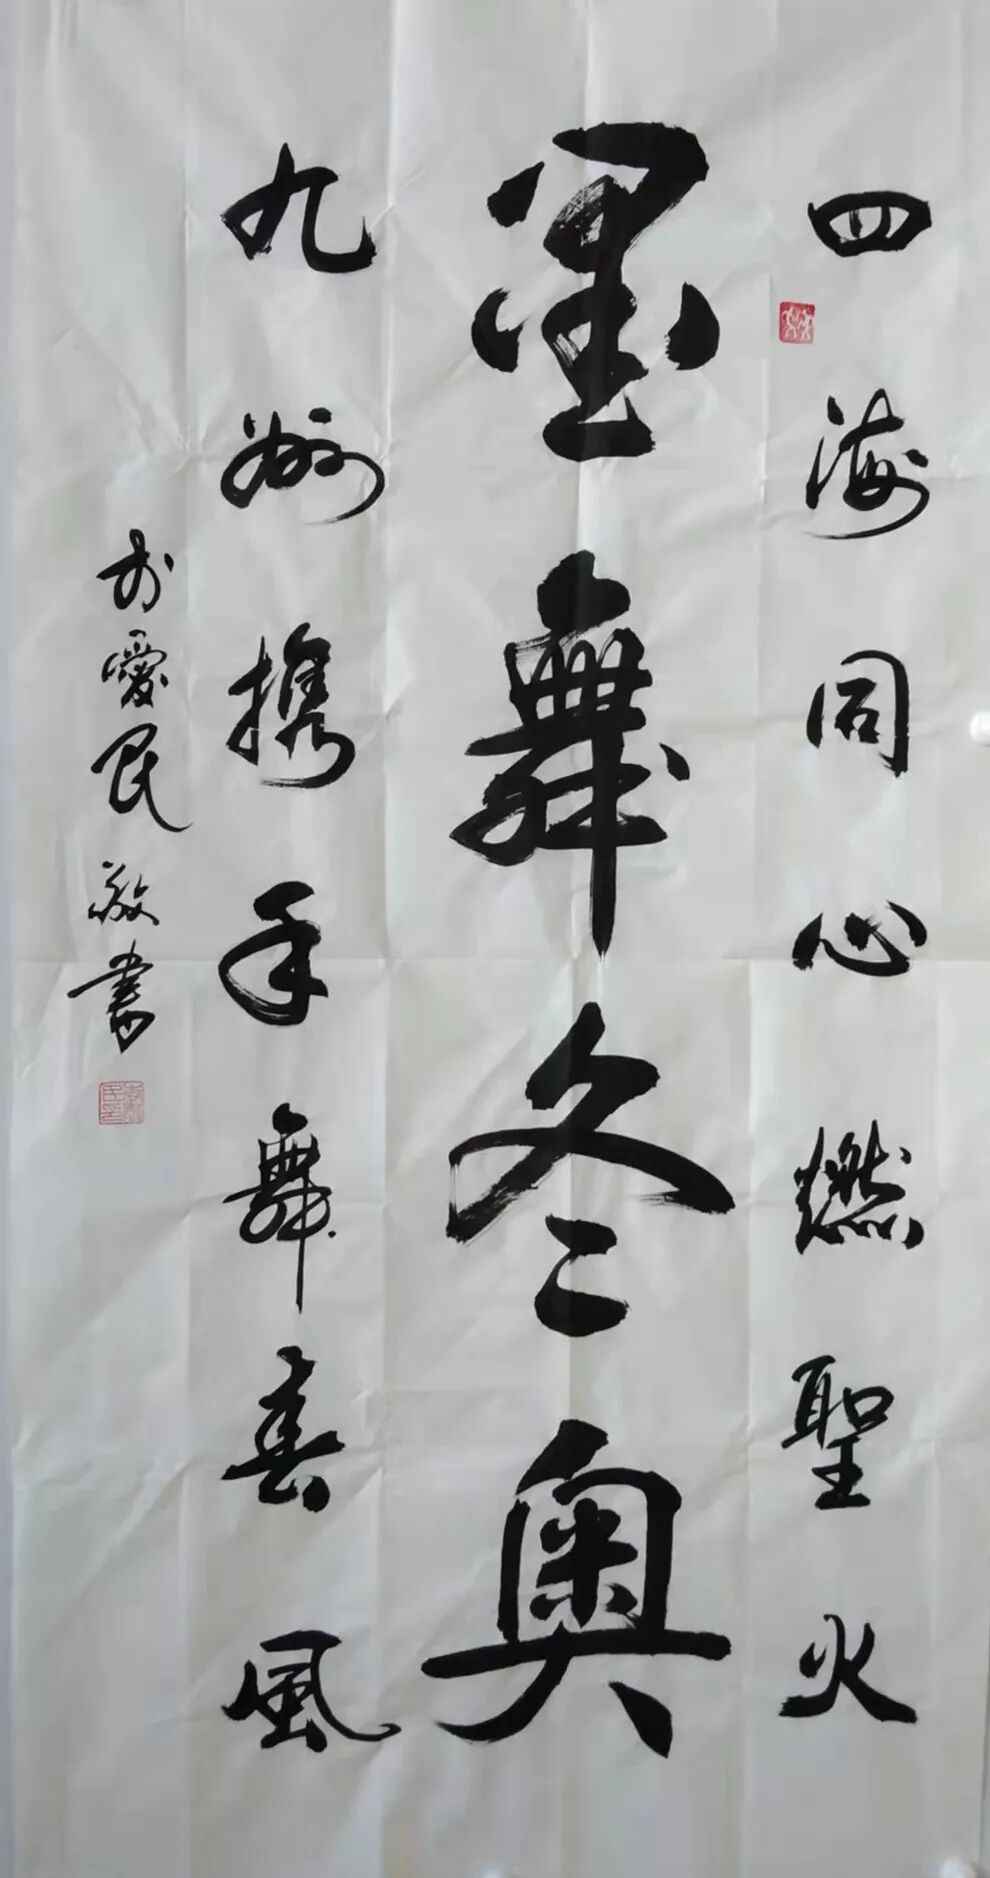 四海同心燃聖火
墨舞冬奥
九州携手舞春風
愛民敬書